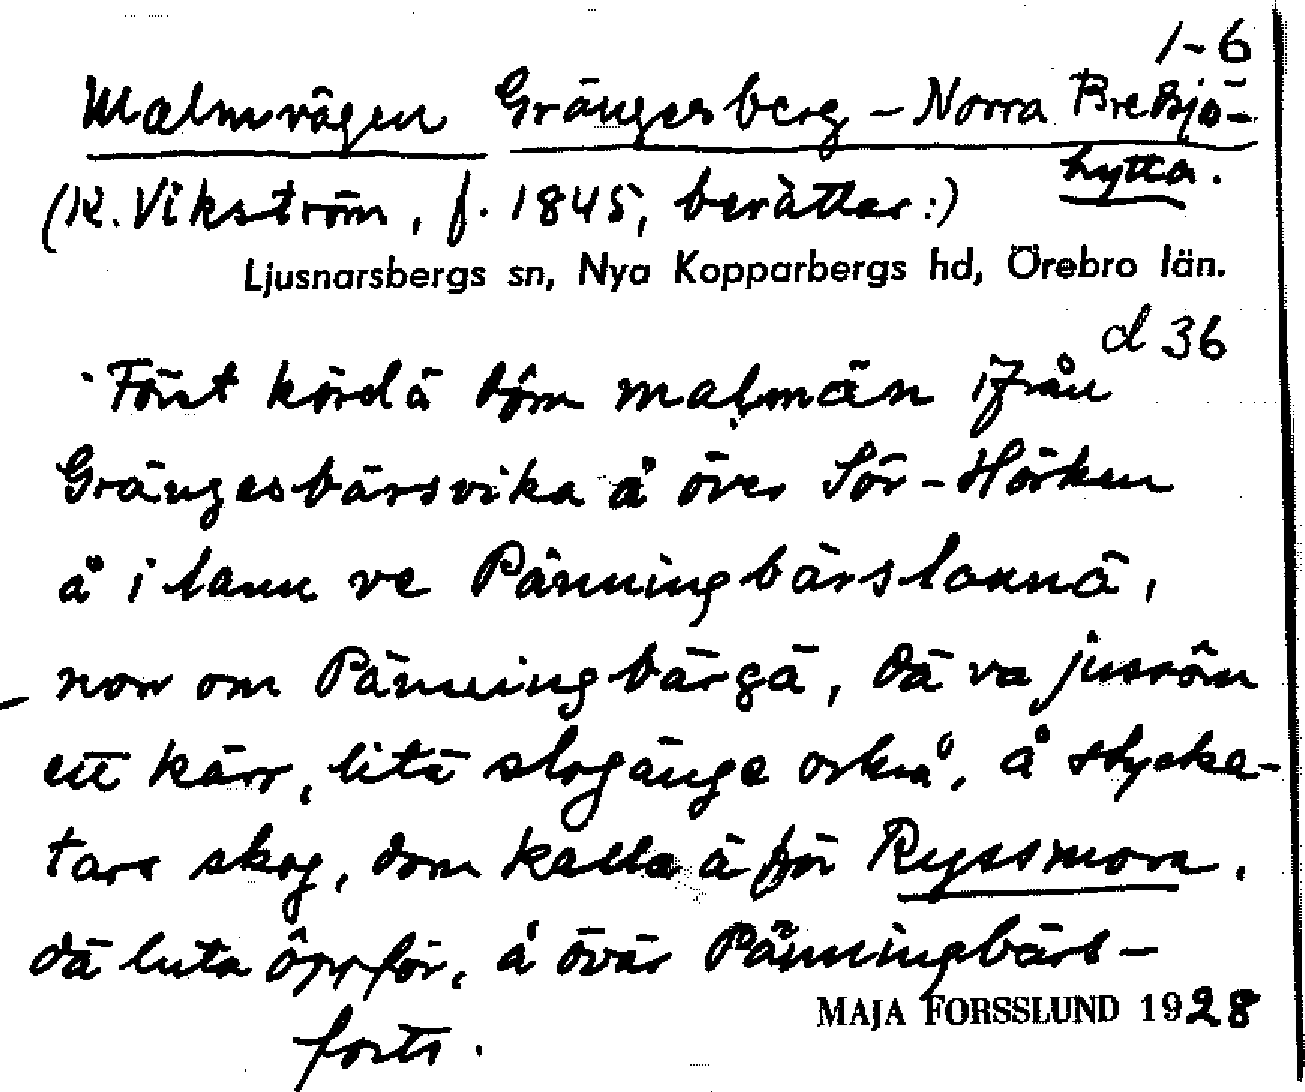 1-6
Malmvägen Grängesberg – Norra Bredsjö-
hytta.
(K. Vikström, f. 1845, berättar:)
Ljusnarsbergs sn, Nya Kopparbergs hd, Örebro län.
d 36
Först kördä döm malmän ifrån
Grängesbärsvika å över Sör-Hörken
å i lann ve Pänningbärslannä,
norr om Pänningbärgä, dä va
ett kärr, litä slogänge också, å stycka-
tars skog, dom kalla ä för Ryssmora.
dä luta öppför, å över Pänningbärs-
forts.
MAJA FORSSLUND 1928